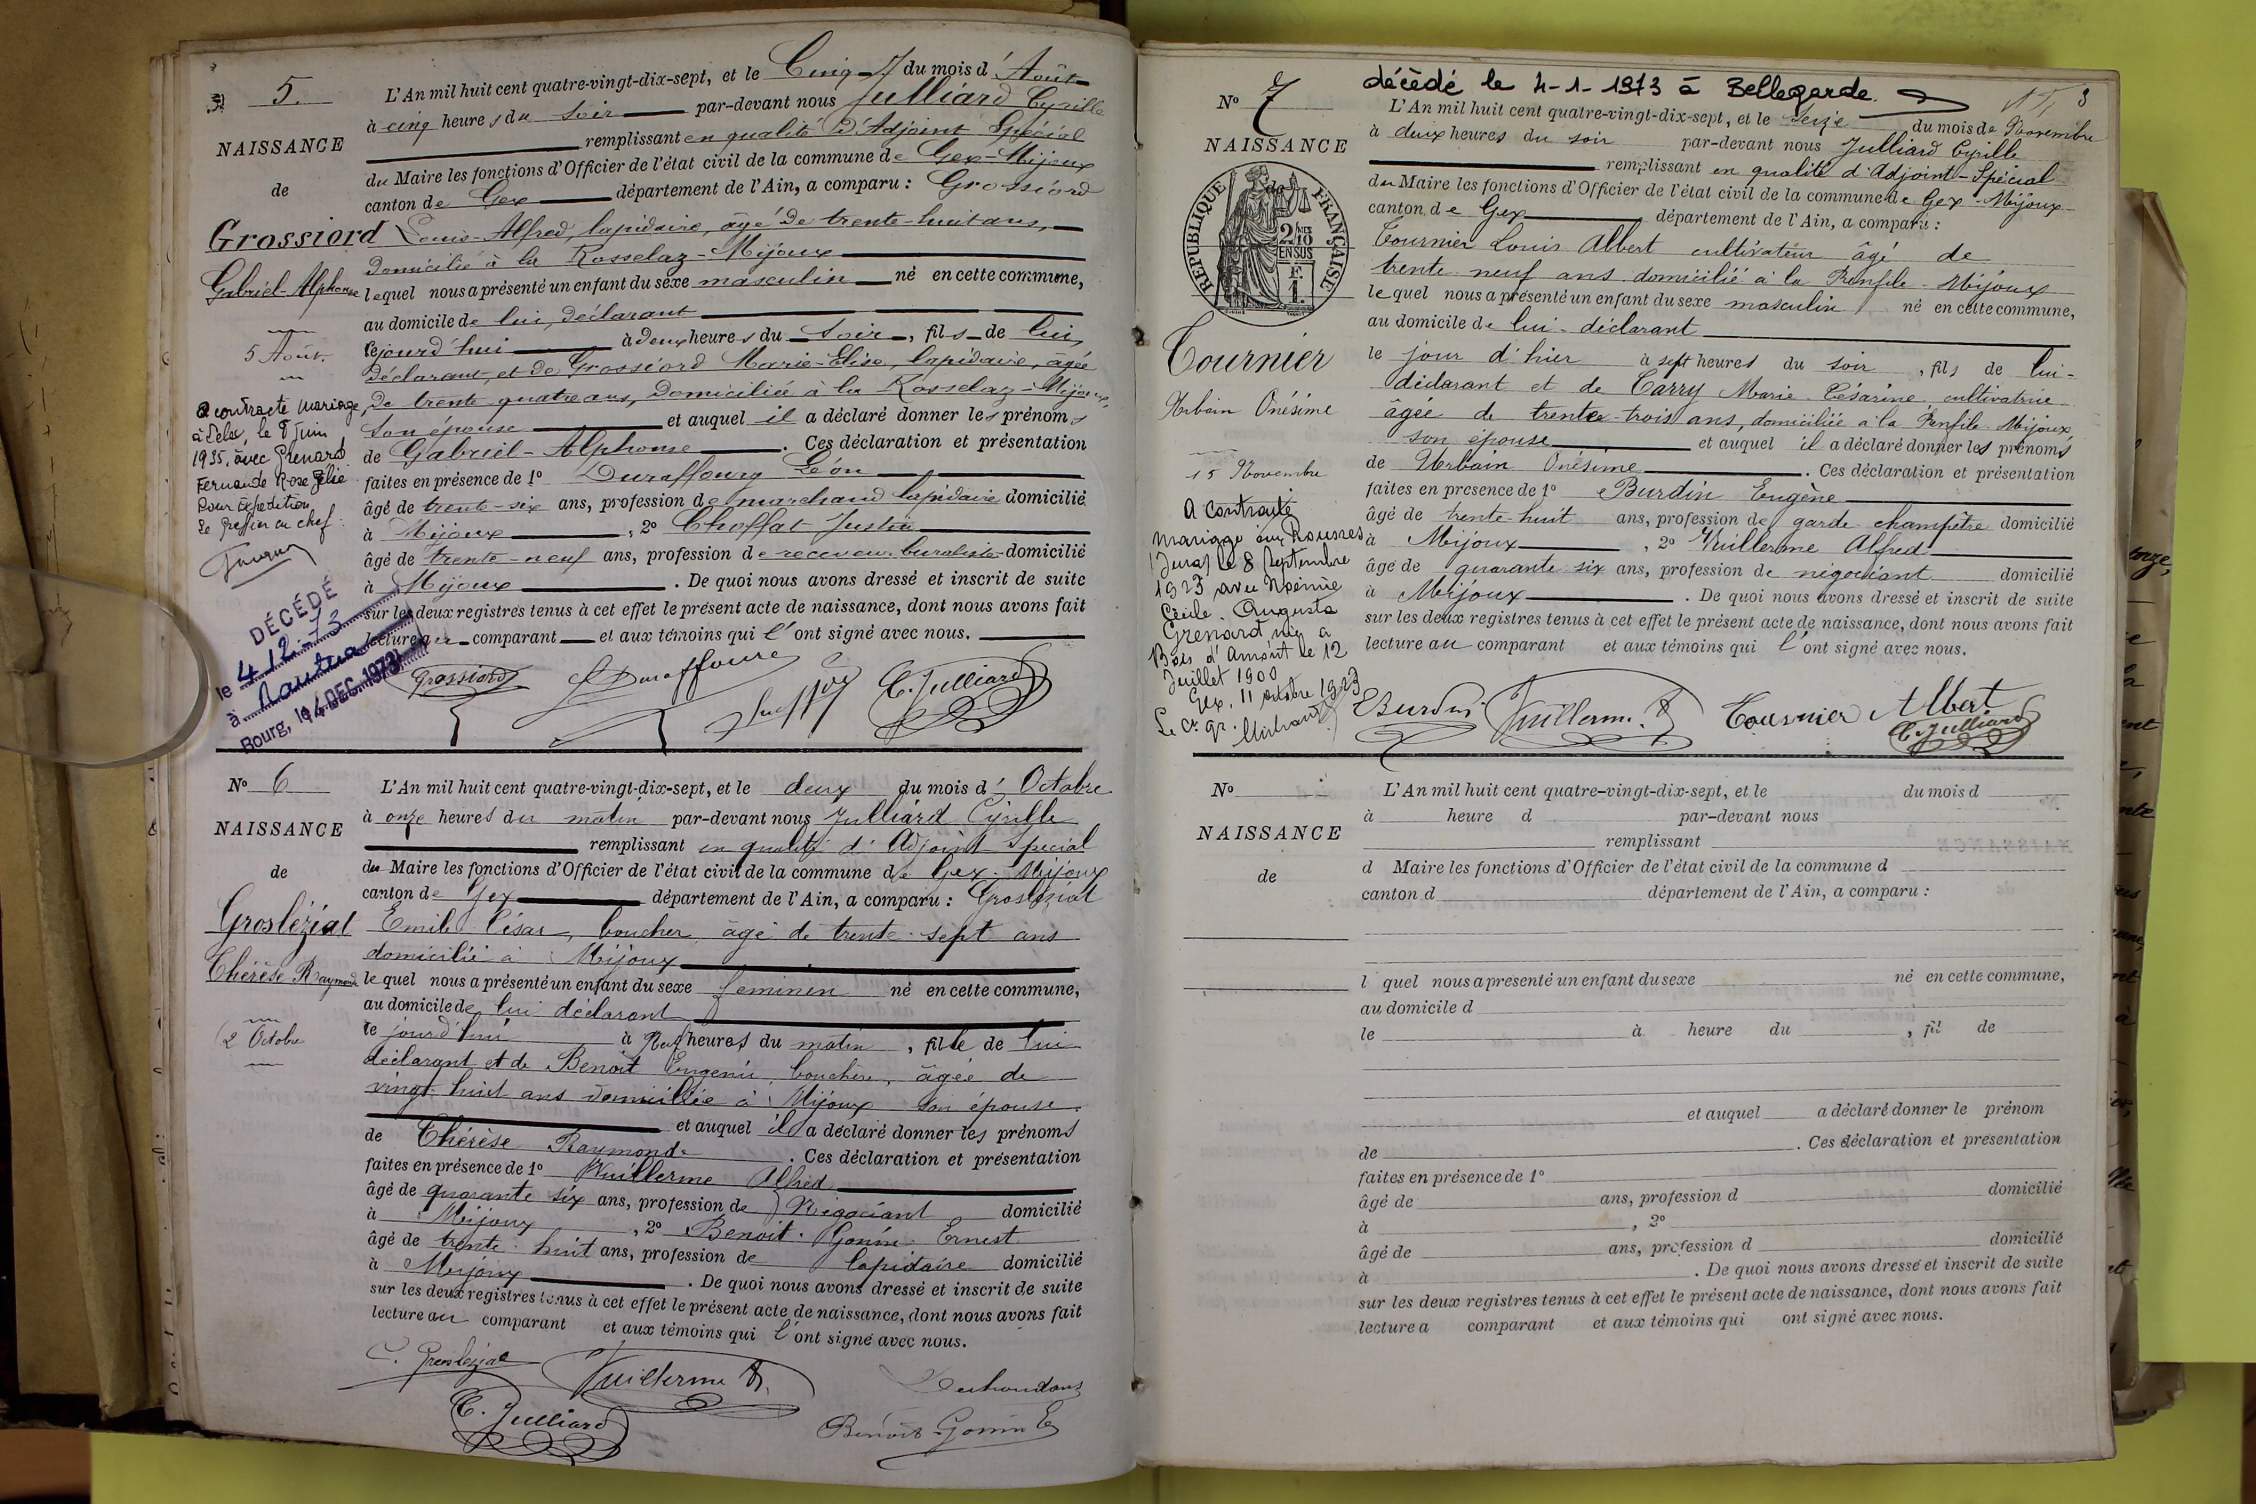 5.
NAISSANCE
de
Grossiord
Gabriel-Alphonse
5 Août.
a contracté mariage
à Lélex, le 8 juin
1935, avec Grenard
Fernande Rose Zélie
Pour Expédition
Le Greffier en chef.
DÉCÉDÉ
le 4.12.73
à Nantua
Bourg, le 14 DEC. 1973
L'An mil huit cent quatre-vingt-dix-sept, et le Cinq du mois d' Août
à cinq heures du soir par-devant nous Julliard Cyrille
remplissant en qualité d'Adjoint Spécial
du Maire les fonctions d'Officier de l'état civil de la commune de Gex-Mijoux
canton de Gex département de l'Ain, a comparu : Grossiord
Louis-Alfred, lapidaire, âgé de trente-huit ans,
domicilié à la Rosselaz-Mijoux
lequel nous a présenté un enfant du sexe masculin né en cette commune,
au domicile de lui, déclarant
cejourd'hui à deux heures du soir, fils de lui,
déclarant, et de Grossiord Marie-Elise, lapidaire, âgée
de trente quatre ans, domiciliée à la Rosselaz-Mijoux,
son épouse et auquel il a déclaré donner les prénoms
de Gabriel-Alphonse. Ces déclaration et présentation
faites en présence de 1º Duraffourg Léon
âgé de trente-six ans, profession de marchand lapidaire domicilié
à Mijoux, 2º Choffat Justin
âgé de trente-neuf ans, profession de receveur buraliste domicilié
à Mijoux. De quoi nous avons dressé et inscrit de suite
sur les deux registres tenus à cet effet le présent acte de naissance, dont nous avons fait
lecture au comparant et aux témoins qui l'ont signé avec nous.
Grossiord L. Duraffourg C. Julliard
Nº 6
NAISSANCE
de
Groslézial
Thérèse Raymonde
2 Octobre
L'An mil huit cent quatre-vingt-dix-sept, et le deux du mois d' Octobre
à onze heures du matin par-devant nous Julliard Cyrille
remplissant en qualité d'Adjoint Spécial
du Maire les fonctions d'Officier de l'état civil de la commune de Gex-Mijoux
canton de Gex département de l'Ain, a comparu : Groslézial
Emile César, boucher, âgé de trente-sept ans
domicilié à Mijoux
lequel nous a présenté un enfant du sexe féminin né en cette commune,
au domicile de lui déclarant
le jourd'hui à neuf heures du matin, fille de lui
déclarant et de Benoit Eugénie, bouchère, âgée de
vingt huit ans domiciliée à Mijoux son épouse.
et auquel il a déclaré donner les prénoms
de Thérèse Raymonde. Ces déclaration et présentation
faites en présence de 1º Vuillerme Alfred
âgé de quarante six ans, profession de Négociant domicilié
à Mijoux, 2º Benoit-Gonin Ernest
âgé de trente-huit ans, profession de lapidaire domicilié
à Mijoux. De quoi nous avons dressé et inscrit de suite
sur les deux registres tenus à cet effet le présent acte de naissance, dont nous avons fait
lecture au comparant et aux témoins qui l'ont signé avec nous.
C. Groslézial Vuillerme A.
C. Julliard Benoit-Gonin E
décédé le 4-1-1973 à Bellegarde.
3
Nº 7
NAISSANCE
de
RÉPUBLIQUE FRANÇAISE
2/10 EN SUS
F. 1.
Tournier
Urbain Onésime
15 Novembre
A contracté
mariage aux Rousses
(Jura) le 8 Septembre
1923 avec Noémie
Cécile Augusta
Grenard née à
Bois d'Amont le 12
Juillet 1900
Gex, 11 octobre 1923
Le Cs gr.
L'An mil huit cent quatre-vingt-dix-sept, et le seize du mois de Novembre
à deux heures du soir par-devant nous Julliard Cyrille
remplissant en qualité d'Adjoint-Spécial
du Maire les fonctions d'Officier de l'état civil de la commune de Gex-Mijoux
canton de Gex département de l'Ain, a comparu :
Tournier Louis Albert cultivateur âgé de
trente-neuf ans domicilié à la Penfile-Mijoux
lequel nous a présenté un enfant du sexe masculin né en cette commune,
au domicile de lui-déclarant
le jour d'hier à sept heures du soir, fils de lui-
déclarant et de Carry Marie Césarine cultivatrice
âgée de trente-trois ans, domiciliée à la Penfile-Mijoux
son épouse et auquel il a déclaré donner les prénoms
de Urbain Onésime. Ces déclaration et présentation
faites en présence de 1º Burdin Eugène
âgé de trente-huit ans, profession de garde champêtre domicilié
à Mijoux, 2º Vuillerme Alfred
âgé de quarante six ans, profession de négociant domicilié
à Mijoux. De quoi nous avons dressé et inscrit de suite
sur les deux registres tenus à cet effet le présent acte de naissance, dont nous avons fait
lecture au comparant et aux témoins qui l'ont signé avec nous.
Burdin Vuillerme A Tournier Albert
C. Julliard
Nº
NAISSANCE
de
L'An mil huit cent quatre-vingt-dix-sept, et le du mois d
à heure d par-devant nous
remplissant
d Maire les fonctions d'Officier de l'état civil de la commune d
canton d département de l'Ain, a comparu :
l quel nous a présenté un enfant du sexe né en cette commune,
au domicile d
le à heure du , fil de
et auquel a déclaré donner le prénom
de . Ces déclaration et présentation
faites en présence de 1º
âgé de ans, profession d domicilié
à , 2º
âgé de ans, profession d domicilié
à . De quoi nous avons dressé et inscrit de suite
sur les deux registres tenus à cet effet le présent acte de naissance, dont nous avons fait
lecture a comparant et aux témoins qui ont signé avec nous.